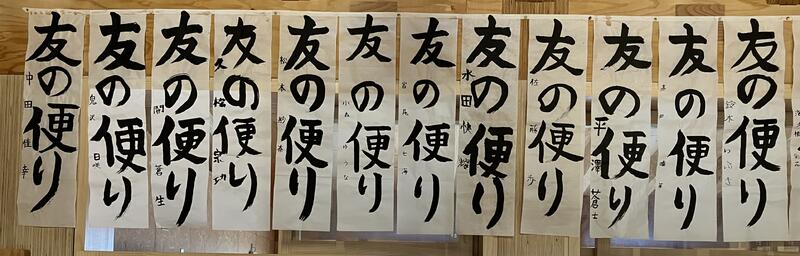 友の便り
鈴木
友の便り
友の便り
平澤 蒼士
友の便り
佐藤 歩
友の便り
水田
友の便り
七海
友の便り
ゆうな
友の便り
松本
友の便り
友の便り
蒼生
友の便り
友の便り
中田 佳幸